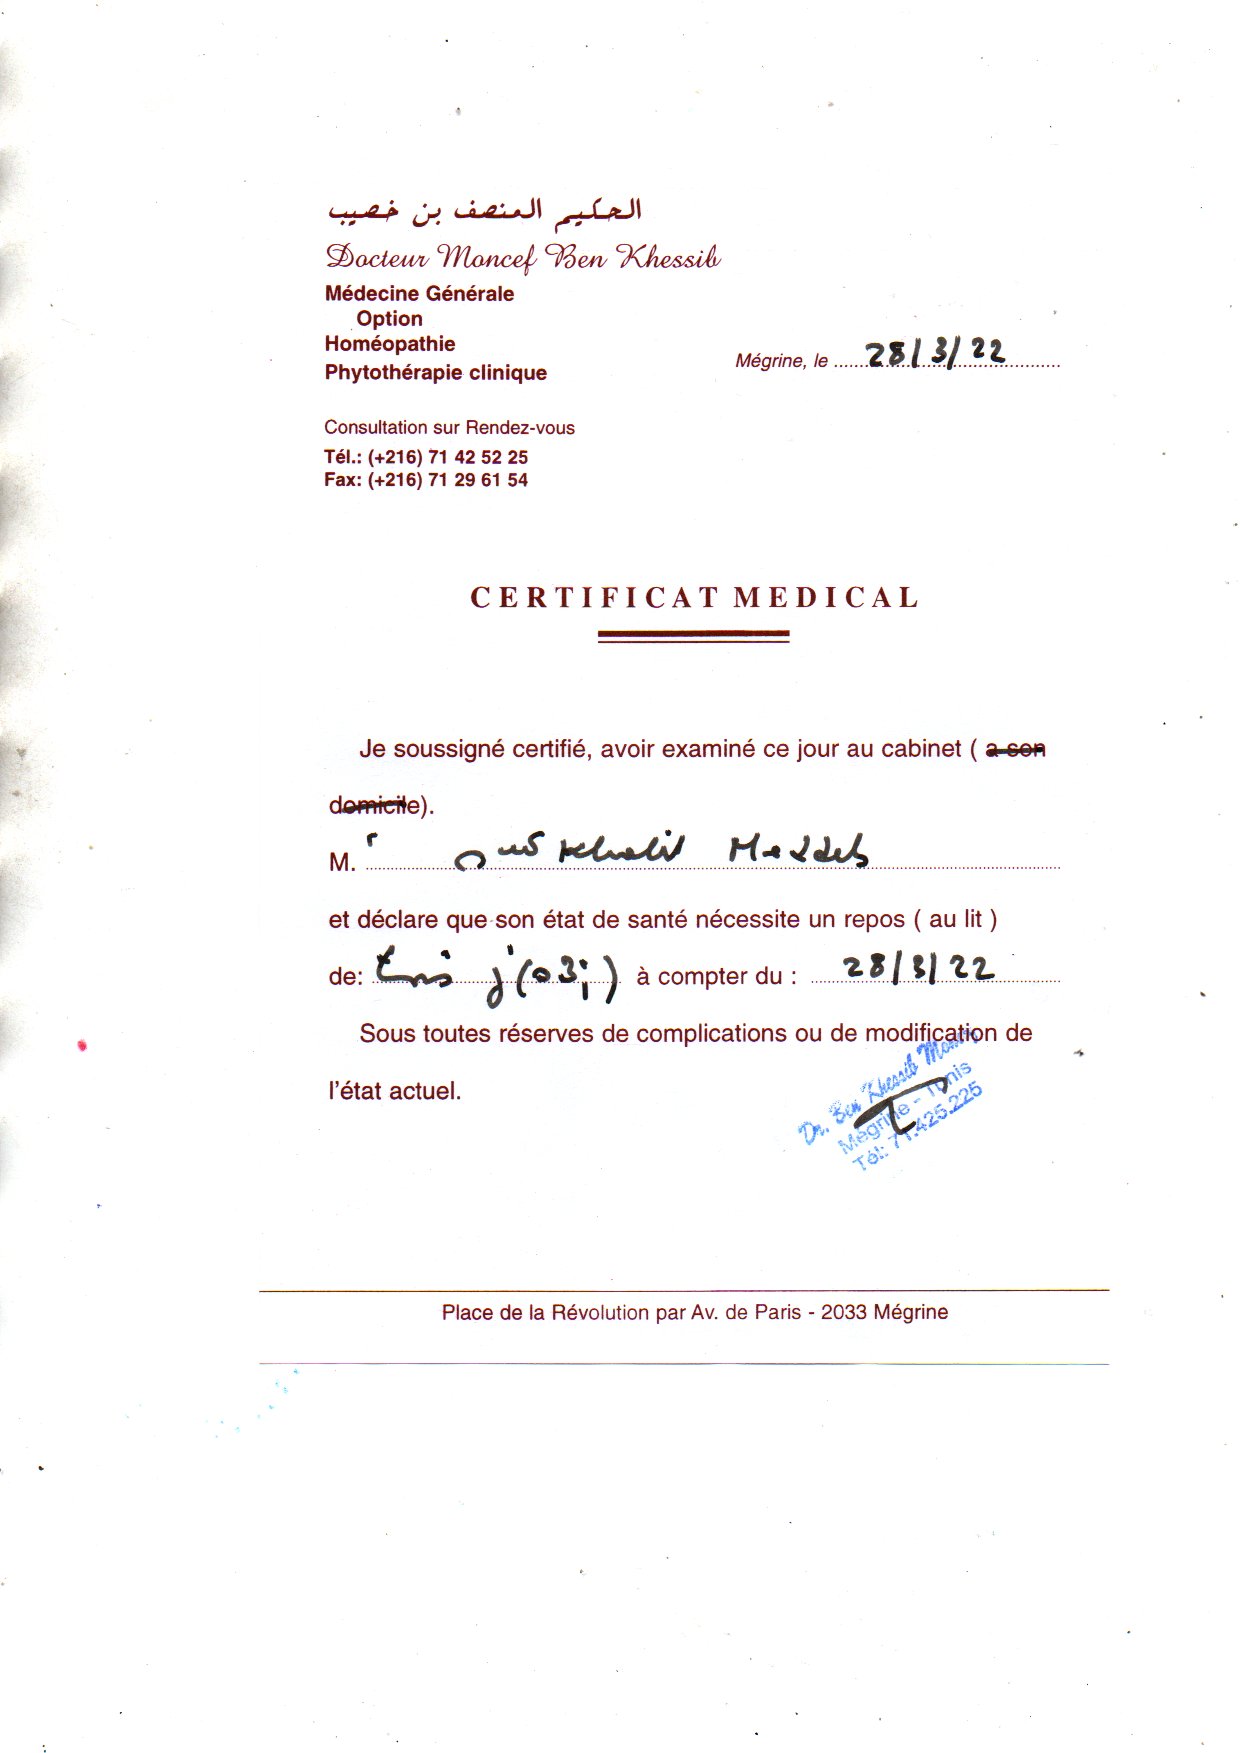 الحكيم المنصف بن خصيب
Docteur Moncef Ben Khessib
Médecine Générale
Option
Homéopathie
Phytothérapie clinique
Mégrine, le 28/3/22
Consultation sur Rendez-vous
Tél.: (+216) 71 42 52 25
Fax: (+216) 71 29 61 54
CERTIFICAT MEDICAL
Je soussigné certifié, avoir examiné ce jour au cabinet ( a son
domicile).
M. r Khalil Maddeb
et déclare que son état de santé nécessite un repos ( au lit )
de: trois j (03j) à compter du : 28/3/22
Sous toutes réserves de complications ou de modification de
l'état actuel.
Dr. Ben Khessib Moncef
Mégrine - Tunis
Tél: 71.425.225
Place de la Révolution par Av. de Paris - 2033 Mégrine